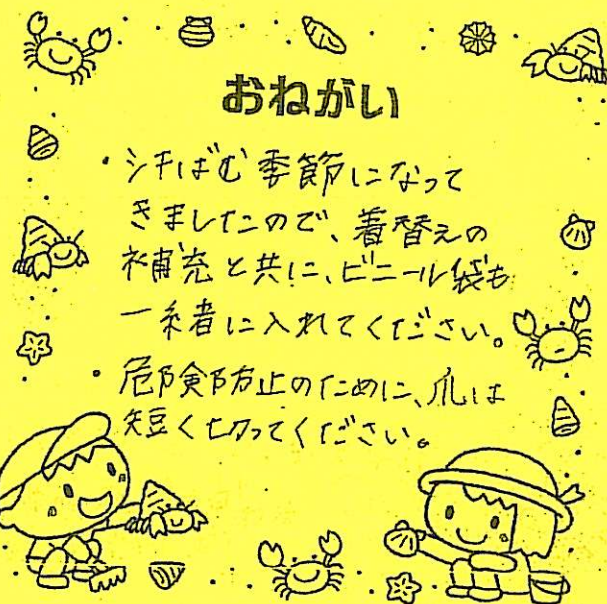 おねがい
・汗ばむ季節になって
きましたので、着替えの
補充と共に、ビニール袋も
一緒に入れてください。
・危険防止のために、爪は
短く切ってください。